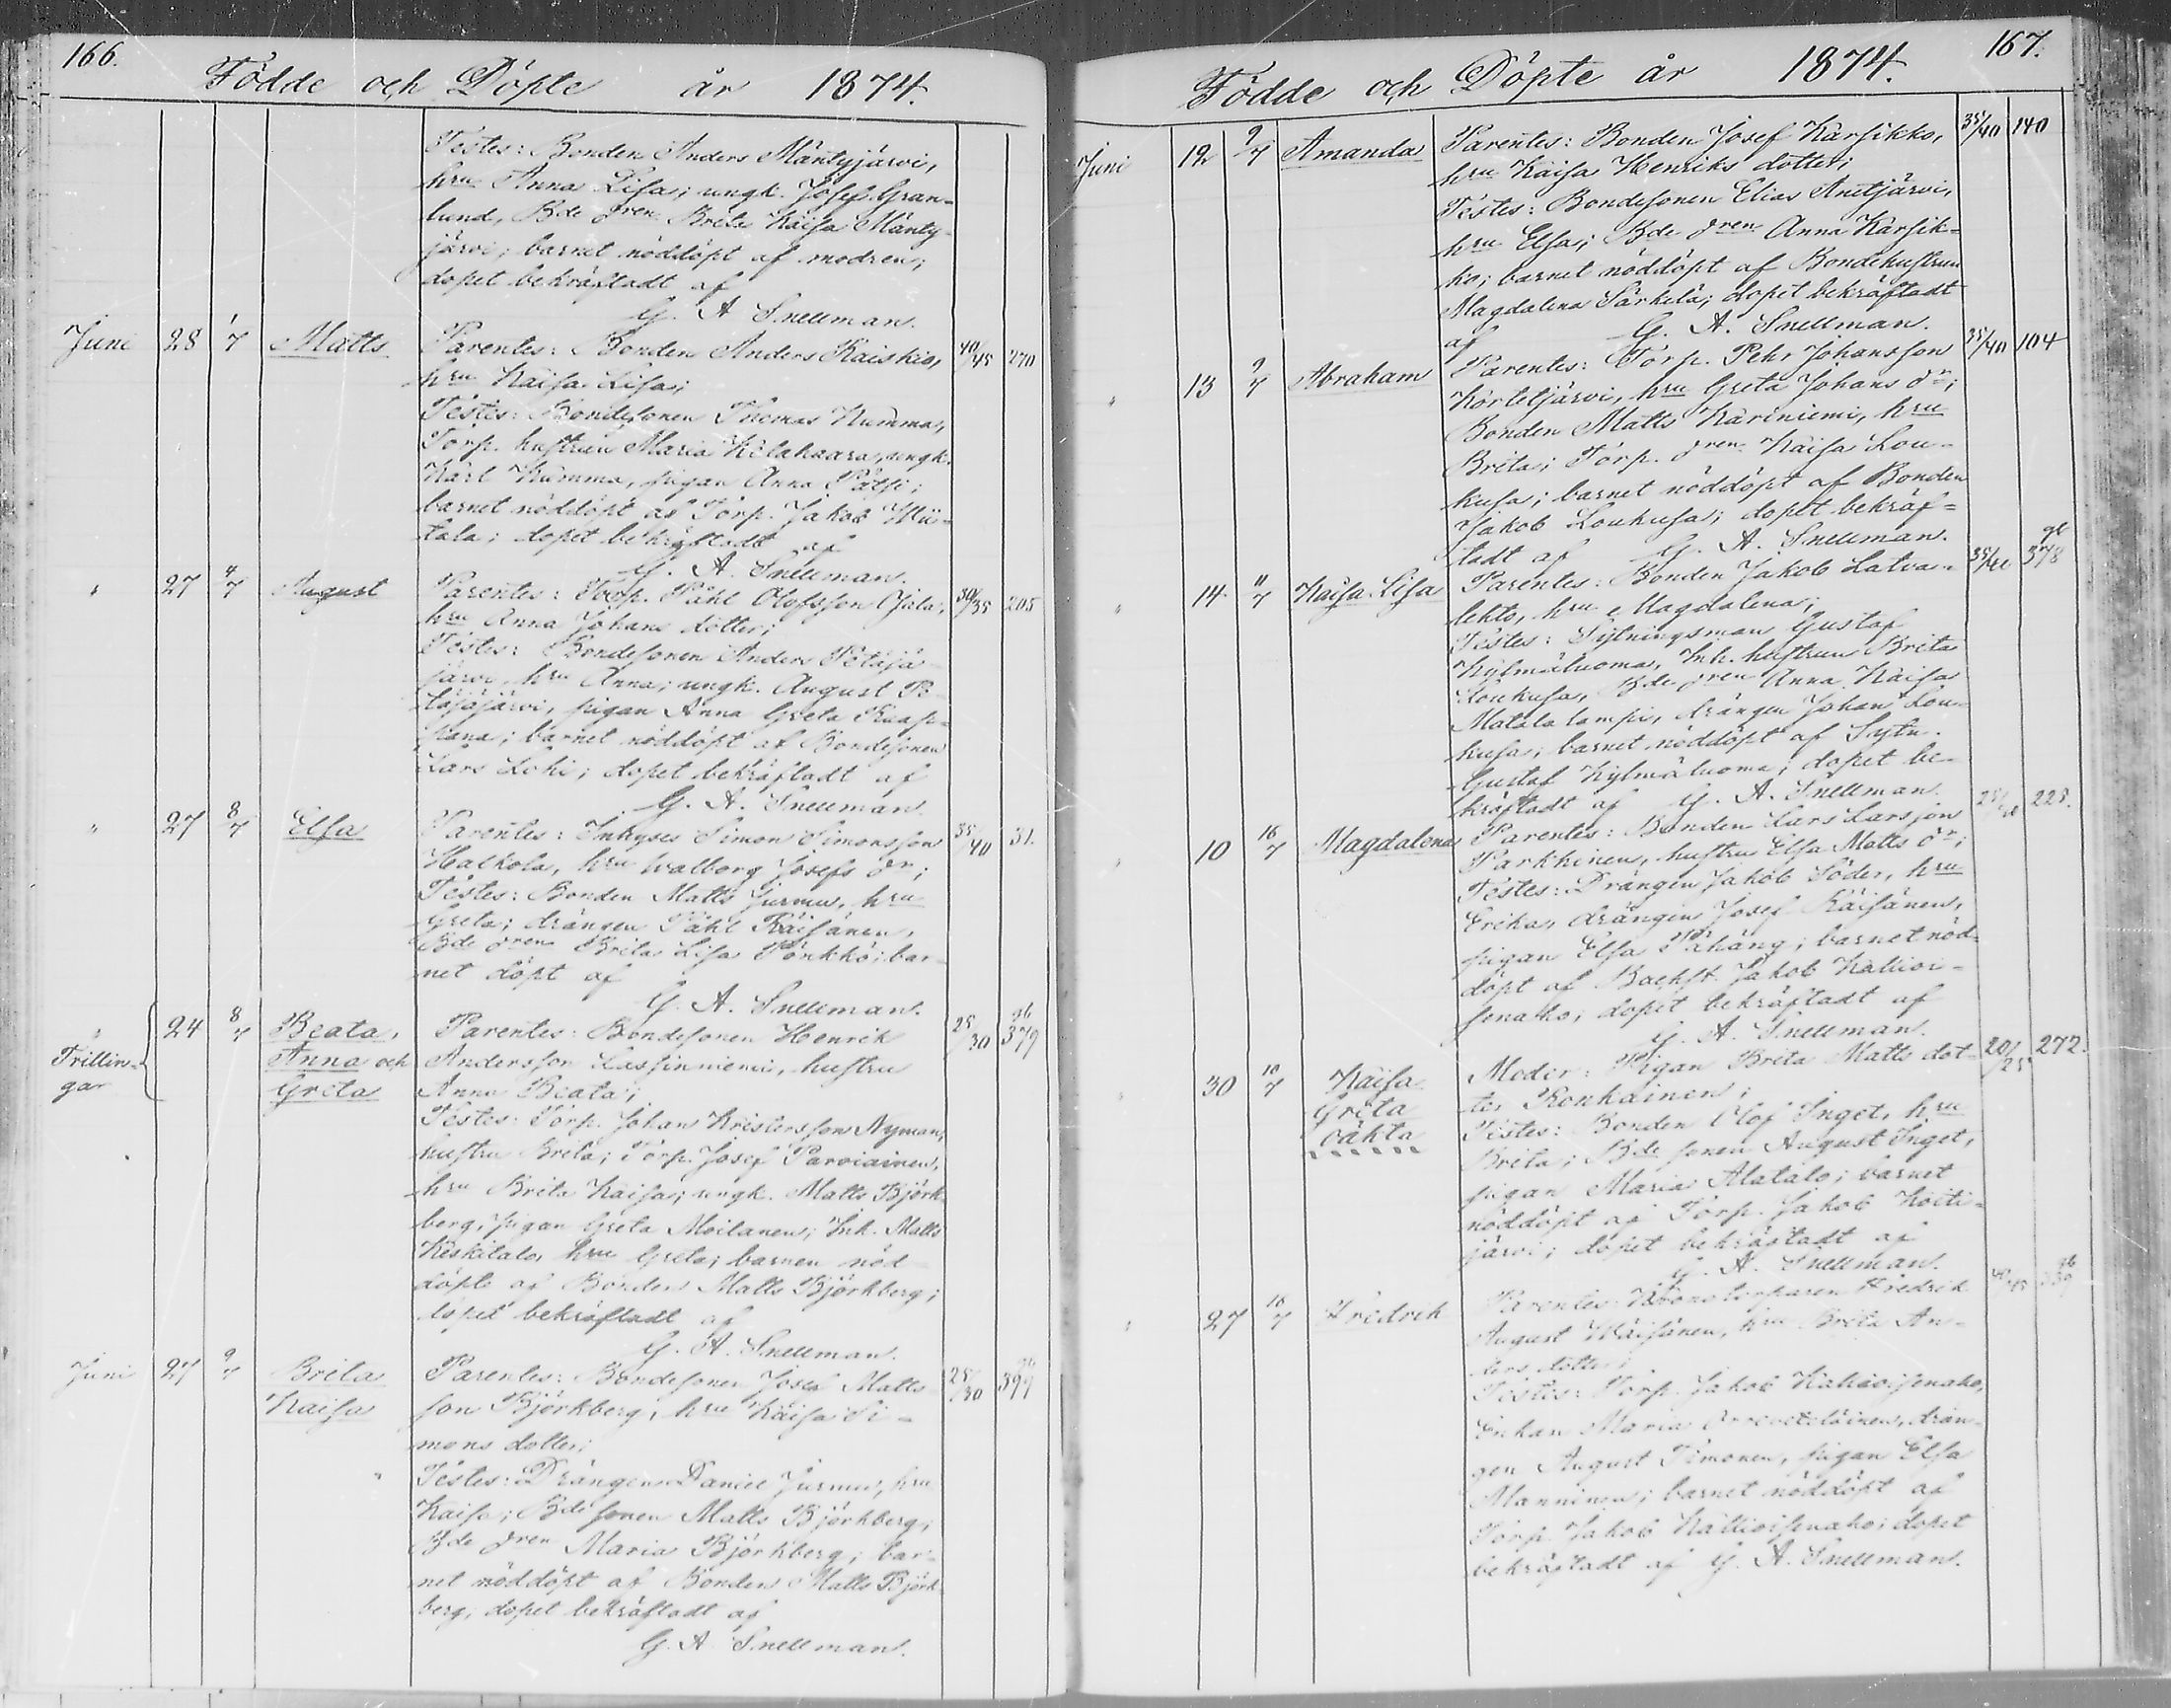 166.
Födde och Döpte år 1874.
Testes: Bonden Anders Mäntyjärvi,
hru Anna Lisa; ungk. Josef Gran-
lund, Bde dren Brita Kaisa Mänty-
järvi; barnet nöddöpt af modren;
dopet bekräftadt af
G. A. Snellman.
Juni 28 1/7 Matts Parentes: Bonden Anders Kaiskio, 40/45 270
hru Kaisa Lisa;
Testes: Bondesonen Thomas Kumma,
Torp. hustrun Maria Kilahaara, ungk.
Karl Kumma, pigan Anna Pätsi;
barnet nöddöpt af Torp. Jakob Mii-
tala; dopet bekräftadt af
G. A. Snellman.
" 27 4/7 August Parentes: Torp. Påhl Olofsson Ojala, 30/35 205
hru Anna Johans dotter;
Testes: Bondesonen Anders Petäjä-
järvi, hru Anna; ungk. August Pe-
täjäjärvi, pigan Anna Greta
barnet nöddöpt af Bondesonen
Lars Lohi; dopet bekräftadt af
G. A. Snellman.
" 27 8/7 Elsa Parentes: Inhyses Simon Simonsson 35/40 31.
Halkola, hru Walborg Josefs dr;
Testes: Bonden Matts Jurmu, hru
Greta; drängen Påhl Räisänen,
Bde dren Brita Lisa Pörkkö; bar-
net döpt af
G. A. Snellman.
" 24 8/7 Beata, Parentes: Bondesonen Henrik 25/30 gb 379
Trillin- Anna och Andersson Lassinniemi, hustru
gar Greta Anna Beata;
Testes: Torp. Johan Kristersson Nyman,
hustru Brita; Torp. Josef Parviainen,
hru Brita Kaisa; ungk. Matts Björk-
berg, pigan Greta Moilanen; Inh. Matts
Keskitalo, hru Greta; barnen nöd-
döpte af Bonden Matts Björkberg;
dopet bekräftadt af
G. A. Snellman.
Juni 27 9/7 Brita Parentes: Bondesonen Josef Matts 25/30 gb 399
Kaisa son Björkberg, hru Kaisa Si-
mons dotter;
Testes: Drängen Daniel Jurmu, hru
Kaisa; Bde sonen Matts Björkberg,
Bde dren Maria Björkberg; bar-
net nöddöpt af Bonden Matts Björk-
berg, dopet bekräftadt af
G. A. Snellman.
167.
Födde och Döpte år 1874.
Juni 12 9/7 Amanda Parentes: Bonden Josef Karsikko, 35/40 140
hru Kaisa Henriks dotter;
Testes: Bondesonen Elias Anetjärvi,
hru Elsa; Bde dren Anna Karsik-
ko; barnet nöddöpt af Bondehustrun
Magdalena Särkelä; dopet bekräftadt
af G. A. Snellman.
" 13 9/7 Abraham Parentes: Torp. Pehr Johansson 35/40 104
Kortetjärvi, hru Greta Johans dr;
Bonden Matts Kariniemi, hru
Brita; Torp. dren Kaisa Lou-
kusa; barnet nöddöpt af Bonden
Jakob Loukusa; dopet bekräf-
tadt af G. A. Snellman.
" 14 11/7 Kaisa Lisa Parentes: Bonden Jakob Latva- 35/40 gb 378
lehto, hru Magdalena;
Testes: Sytningsman Gustaf
Kylmäluoma, Inh. hustrun Brita
Loukusa, Bde dren Anna Kaisa
Matalalampi, drängen Johan Lou-
kusa; barnet nöddöpt af Sytn.
Gustaf Kylmäluoma; dopet be-
kräftadt af G. A. Snellman.
" 10 16/7 Magdalena Parentes: Bonden Lars Larsson 228.
Parkkinen, hustru Elsa Matts dr;
Testes: Drängen Jakob Söder, hru
Erika, drängen Josef Räisänen,
pigan Elsa Pahäng; barnet nöd-
döpt af Backst. Jakob Kallioi-
senaho; dopet bekräftadt af
G. A. Snellman.
30 10/7 Kaisa Moder: Pigan Brita Matts dot- 20/25 272.
Greta ter Ronkainen;
oäkta Testes: Bonden Olof Inget, hru
Brita; Bde sonen August Inget,
pigan Maria Alatalo; barnet
nöddöpt af Torp. Jakob Koiti-
järvi; dopet bekräftadt af
G. A. Snellman.
" 27 16/7 Fredrek Parentes: Kronotorparen Fredrik 40/45 gb 339
August Wäisänen, hru Brita An-
ders dotter;
Testes: Torp. Jakob Kallioisenaho,
Enkan Maria drän-
gen August Timonen, pigan Elsa
Manninen; barnet nöddöpt af
Torp. Jakob Kallioisenaho; dopet
bekräftadt af G. A. Snellman.